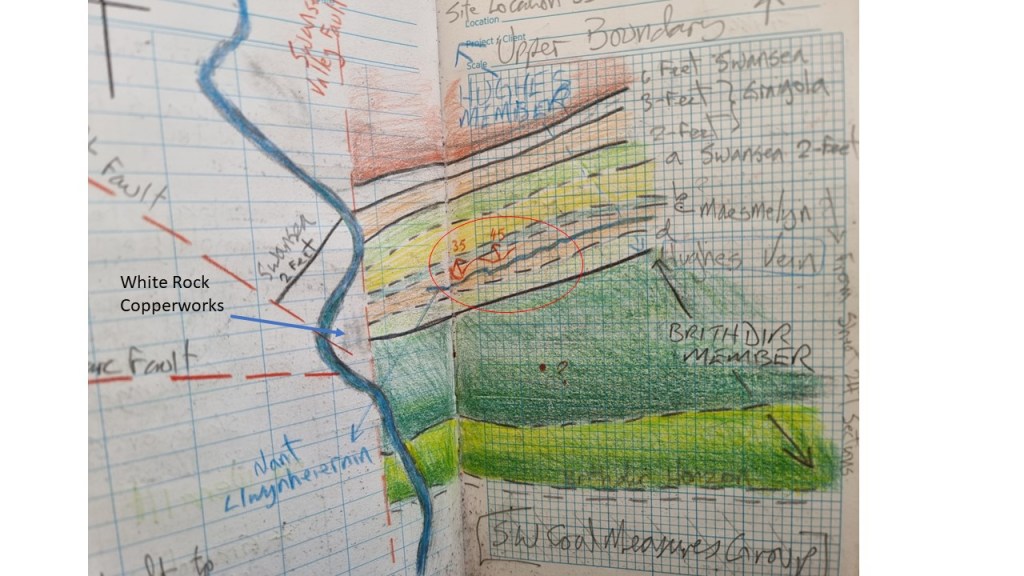 Site Location
Location
Project / Client
Scale
Upper Boundary
Swansea
Valley Fault
HUGHES
MEMBER
6 Feet Swansea
3-Feet } Gingola
2-Feet
a Swansea 2-Feet
Fault
?
Maesmelyn
d
Hughes Vein
Swansea
2 Feet
35
45
White Rock
Copperworks
BRITHDIR
MEMBER
Fault
? 
Nant
Llwynheiernin
Brithdir Horizon
SW Coal Measures Group
From
Sections